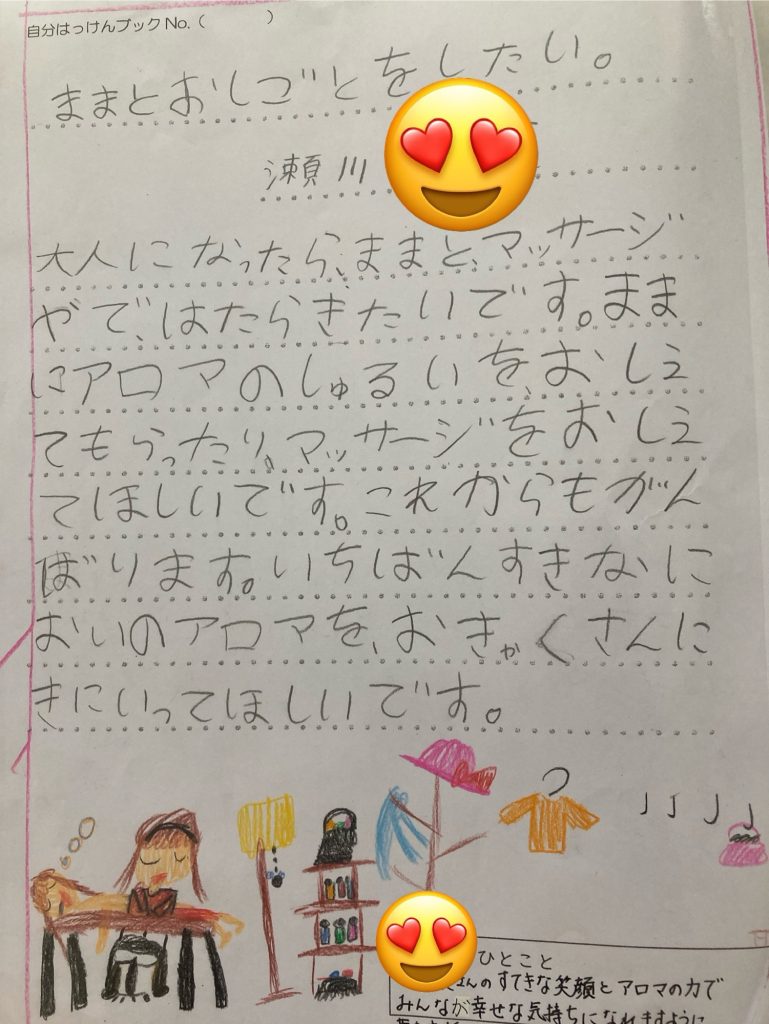 自分はっけんブック No.（　　　）
ままとおしごとをしたい。
瀬川
大人になったら、ままと、マッサージ
やで、はたらきたいです。まま
にアロマのしゅるいを、おしえ
てもらったり、マッサージをおしえ
てほしいです。これからもがん
ばります。いちばんすきなに
おいのアロマを、おきゃくさんに
きにいってほしいです。
ひとこと
さんのすてきな笑顔とアロマの力で
みんなが幸せな気持ちになれますように